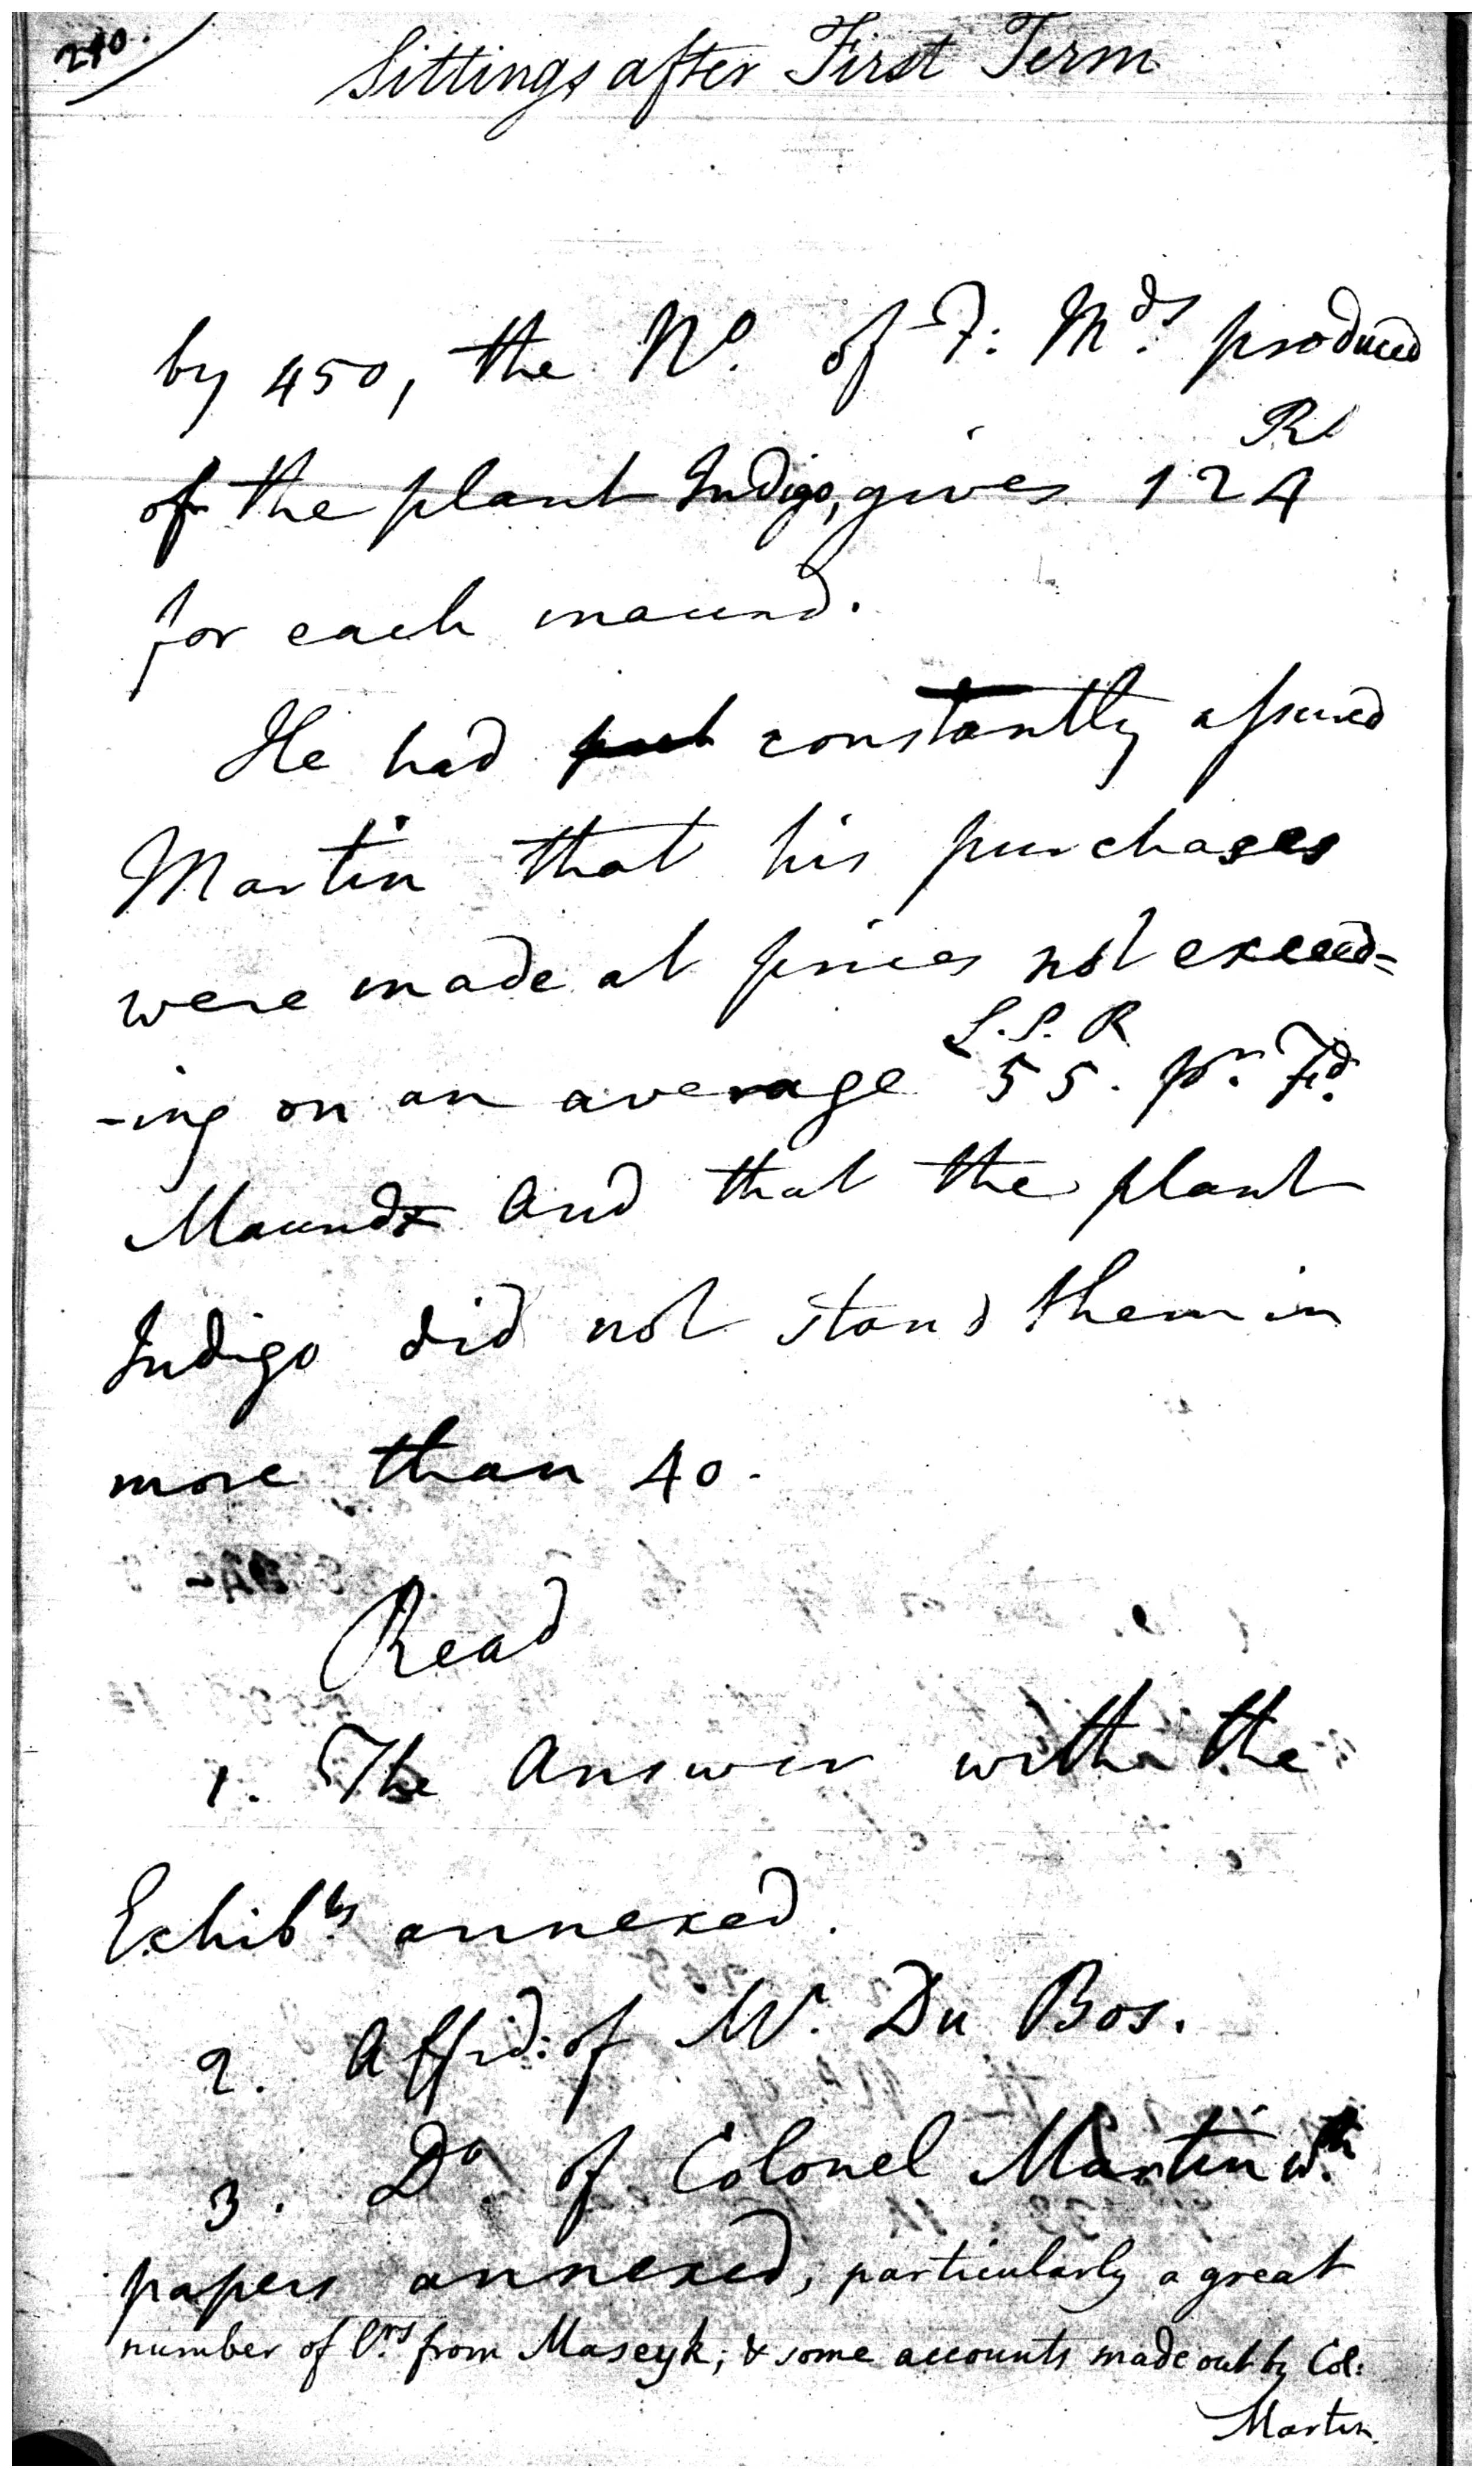 240.
Sittings after First Term
by 450, the No. of F: Mds. produced
R
of the plant Indigo, gives 124
for each maund.
He had constantly assured
Martin that his purchases
were made at prices not exceed=
L. S. R
-ing on an average 55. pr. Fd.
Maund and that the plant
Indigo did not stand them in
more than 40.
Read
1. The Answer with the
Exhibts annexed.
2. Affid: of Mr. Du Bos.
3. Do. of Colonel Martin wth
papers annexed, particularly a great
number of lrs. from Maseyk; & some accounts made out by Col:
Martin.